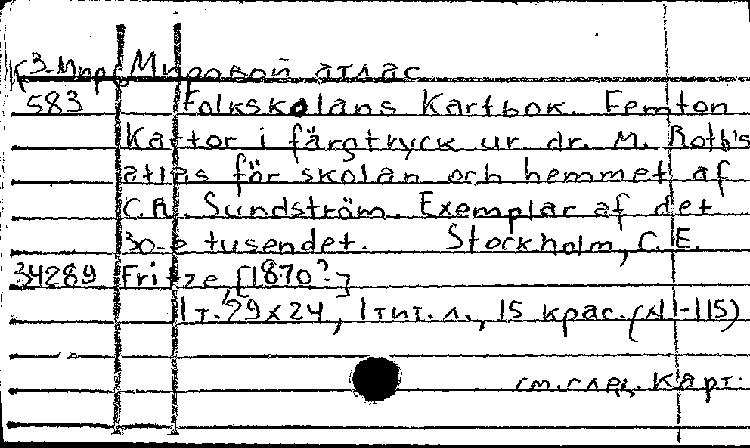 К3-Мир Мировой атлас
583 Folkskolans Kartbok. Femton
Kartor i färgtryck ur dr. M. Roth's
atlas för skolan och hemmet af
C.R. Sundström. Exemplar af det
30-e tusendet. Stockholm, C.E.
34289 Fritze, [1870?]
1 т. 29x24, 1 тит. л., 15 крас. (№1-115)
см. след. карт.